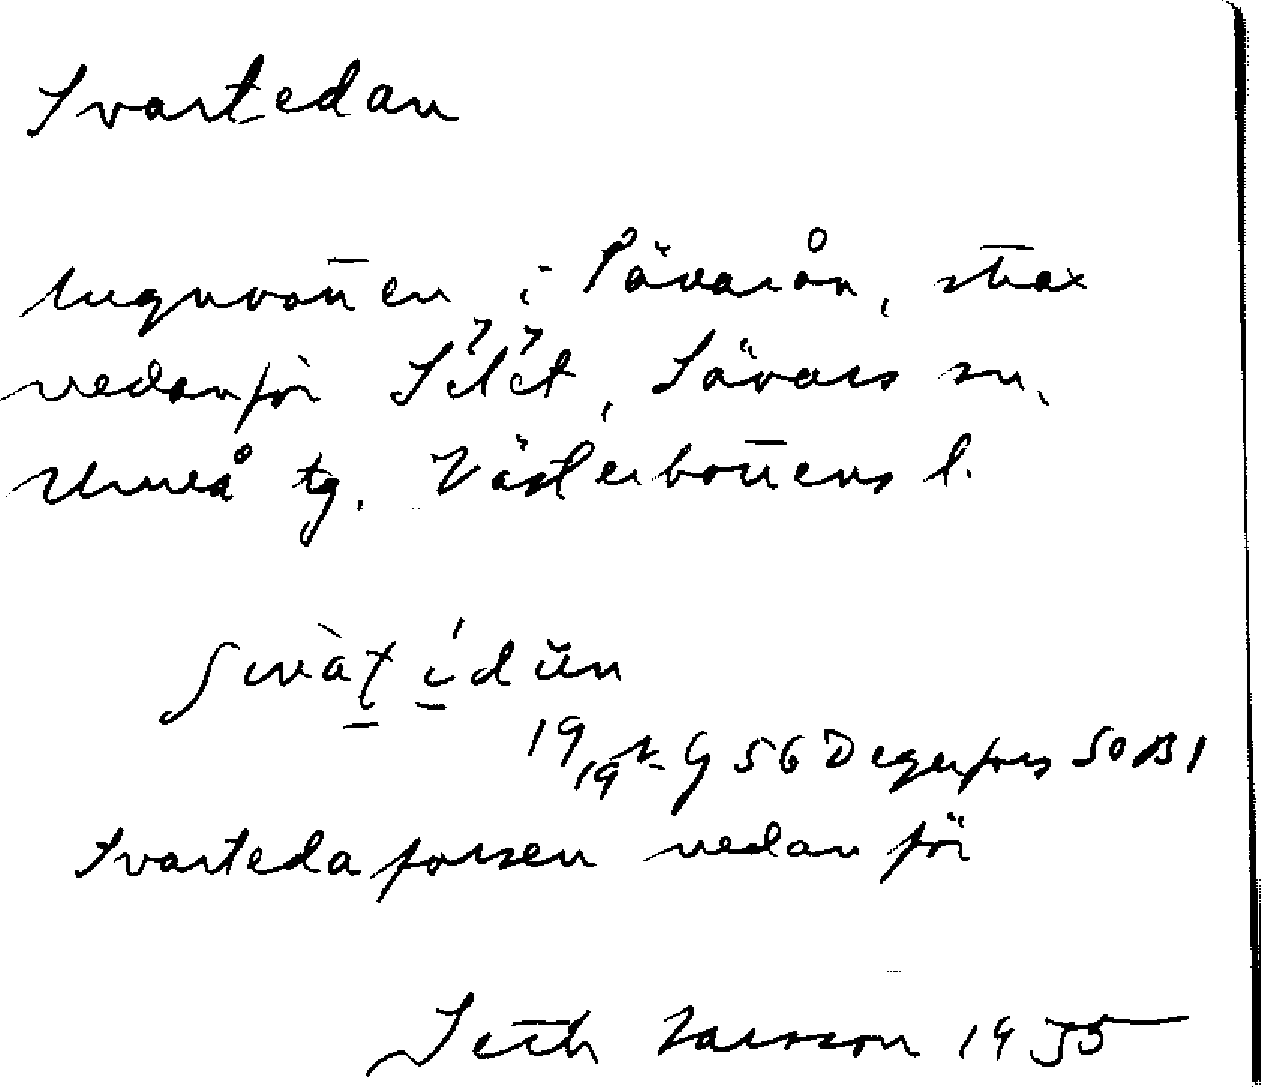 Svartedan
lugnvatten i Sävarån, strax
nedanför Selet, Sävars sn,
Umeå tg. Västerbottens l.
Degerfors SO B1
Svartedaforsen nedanför
Seth Larsson 1955